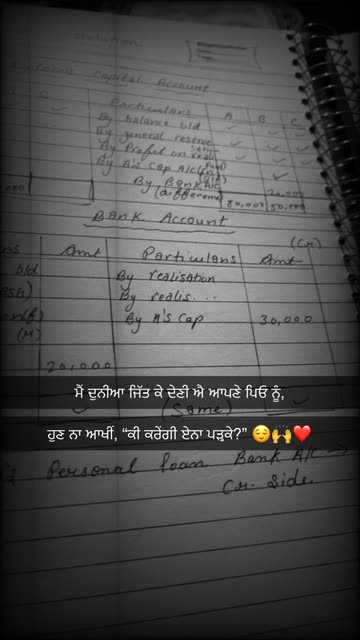 Capital Account
C Particulars A B C
By balance bld
By general reserve
By Profit on reali
By A's cap A/c
By Bank A/c 20,000
(difference) 80,000 50,000
Bank Account
(Cr)
Amt Particulars Amt
bld By realisation
By realis...
By A's cap 30,000
(M)
20,000
ਮੈਂ ਦੁਨੀਆ ਜਿੱਤ ਕੇ ਦੇਣੀ ਐ ਆਪਣੇ ਪਿਓ ਨੂੰ,
(Same)
ਹੁਣ ਨਾ ਆਖੀਂ, “ਕੀ ਕਰੇਂਗੀ ਏਨਾ ਪੜ੍ਹਕੇ?” 😌🙌❤️
Personal loan Bank A/c
Cr. Side